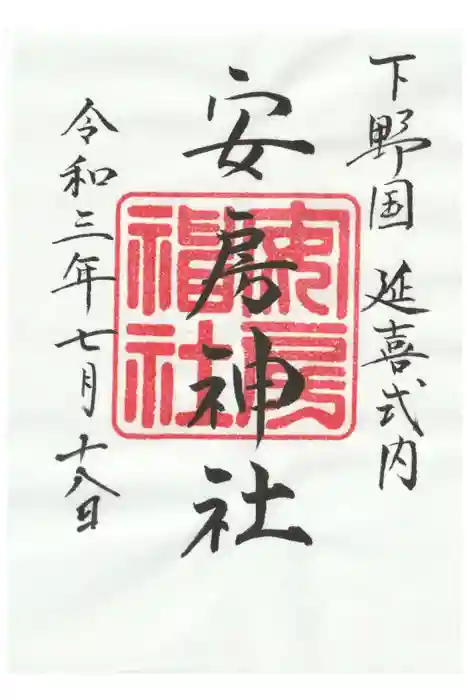 下野国 延喜式内
安房神社
安房
神社
令和三年七月十八日